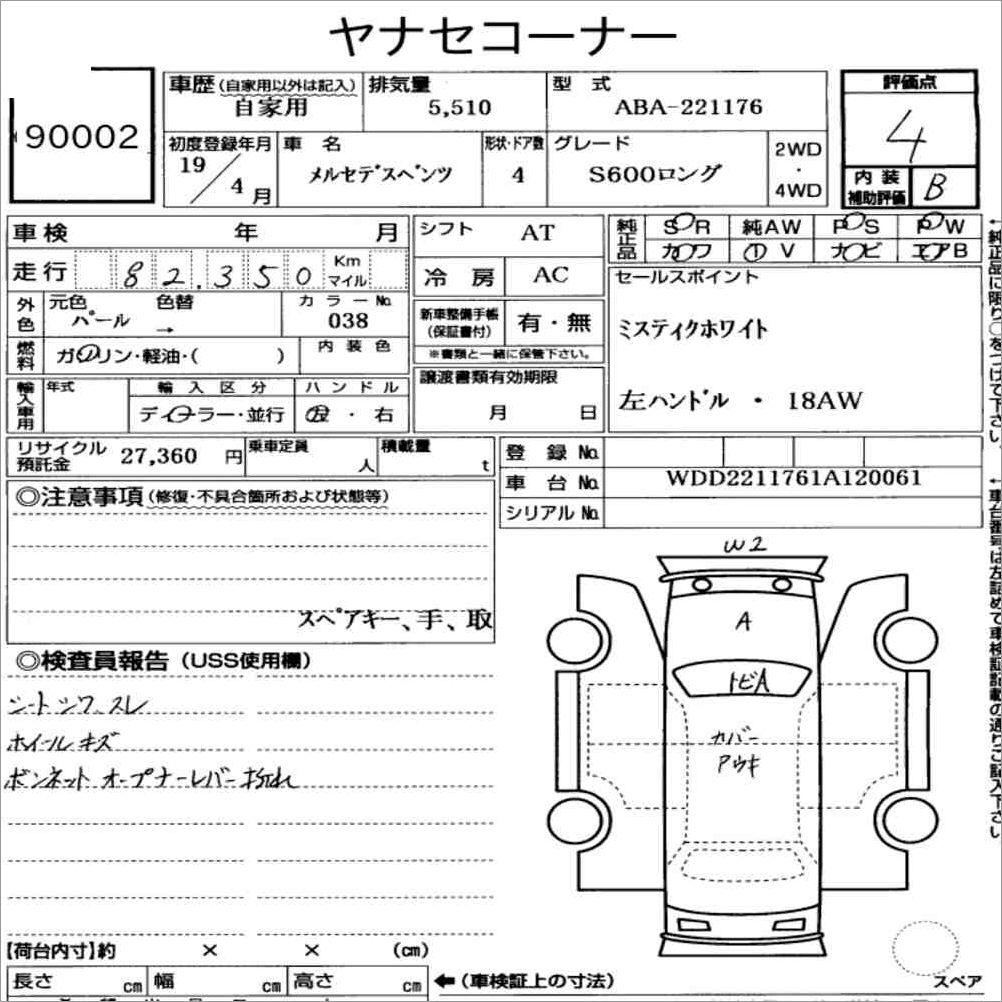 ヤナセコーナー
90002
車歴(自家用以外は記入) 排気量 型 式 評価点
自家用 5,510 ABA-221176 4
初度登録年月 車 名 形状・ドア数 グレード 2WD・4WD
19/4月 メルセデスベンツ 4 S600ロング
内装補助評価 B
車検 年 月 シフト AT 純正品 SR 純AW PS PW
カワ ① V ナビ エアB
走行 82.350 Km マイル 冷 房 AC
セールスポイント
外色 元色 色替 カラーNo.
パール → 038
新車整備手帳(保証書付) 有・無
※書類と一緒に保管下さい。
ミスティクホワイト
燃料 ガソリン・軽油・( ) 内装色
譲渡書類有効期限
月 日
輸入車用 年式 輸入区分 ハンドル
ディーラー・並行 左・右
左ハンドル ・ 18AW
リサイクル預託金 27,360 円 乗車定員 人 積載量 t
登 録 No.
車 台 No. WDD2211761A120061
シリアル No.
◎注意事項(修復・不具合箇所および状態等)
スペアキー、手、取
◎検査員報告(USS使用欄)
シートシワ、スレ
ホイールキズ
ボンネット オープナーレバー折れ
W2
A
トビA
カバー
アウキ
スペア
【荷台内寸】約 × × (cm)
長さ cm 幅 cm 高さ cm ←(車検証上の寸法)
←純正品に限り○をつけて下さい。
←車台番号は左詰めで車検証記載の通りご記入下さい。